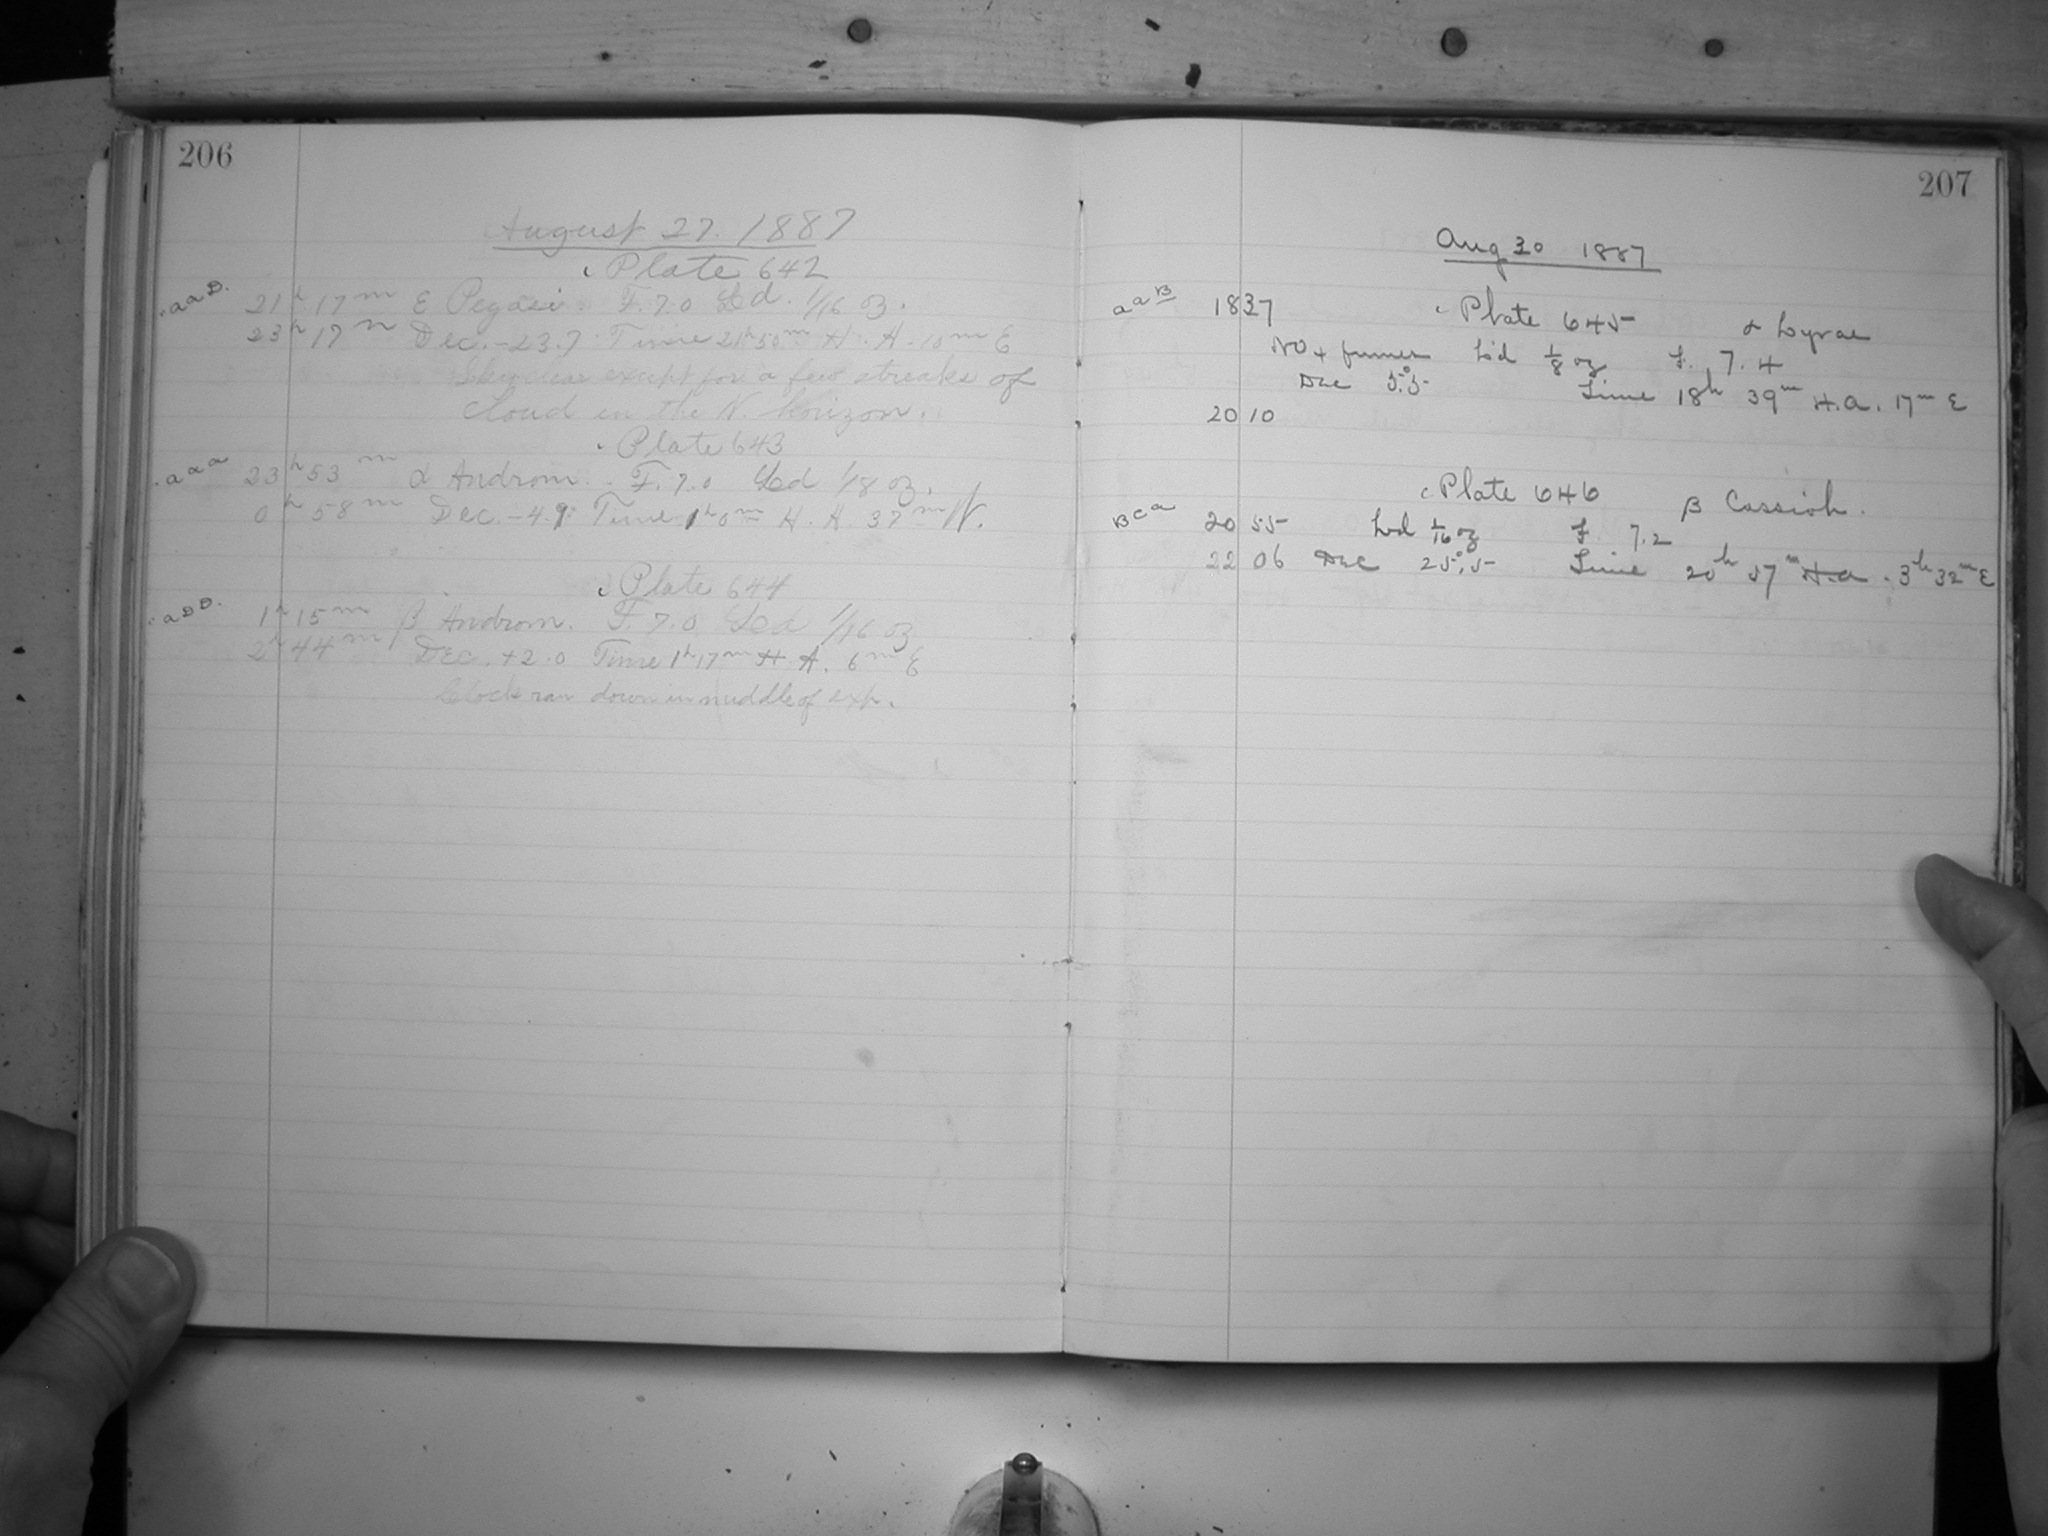 206
August 27. 1887
Plate 642
aaB. 21h 17m ε Pegasi. F. 7.0 Ld. 1/16 oz.
23h 17m Dec. -23.7 Time 21h 50m H. A. 10m E
Sky clear except for a few streaks of
cloud in the N. horizon.
Plate 643
aaa 23h 53m α Androm. F. 7.0 Led 1/8 oz.
0h 58m Dec. -4.9 Time 1h 0m H. A. 37m W.
Plate 644
1h 15m β Androm. F. 7.0 Led 1/16 oz
2h 44m Dec. +2.0 Time 1h 17m H. A. 6m E
Clock ran down in middle of exp.
207
Aug 30 1887
aaB 18 37 Plate 645 α Lyrae
Ld 1/8 oz F. 7.4
Dec 5°.5 Time 18h 39m H.a. 17m E
20 10
Plate 646 β Cassiop.
BCa 20 55 Ld 1/16 oz F. 7.2
22 06 Dec 25°.5 Time 20h 57m H.a. 3h 32m E